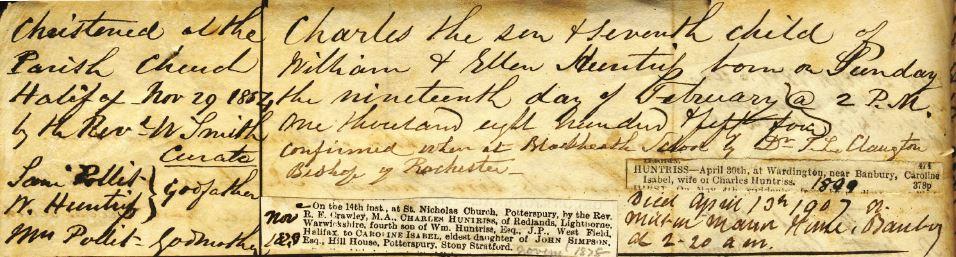 Christened at the
Parish Church
Halifax Nov 29 1854
by the Revd W Smith
Curate
Sam Pollit
W. Huntriss } Godfather
Mrs Pollit - Godmother
Charles the son & seventh child of
William & Ellen Huntriss born on Sunday
the nineteenth day of February @ 2 P.M.
One thousand eight hundred & fifty four
confirmed when at Blackheath School by Dr T. L. Claughton
Bishop of Rochester -
Nov
1878
- On the 14th inst., at St. Nicholas Church, Potterspury, by the Rev.
R. F. Crawley, M.A., CHARLES HUNTRISS, of Redlands, Lighthorne,
Warwickshire, fourth son of Wm. Huntriss, Esq., J.P., West Field,
Halifax, to CAROLINE ISABEL, eldest daughter of JOHN SIMPSON,
Esq., Hill House, Potterspury, Stony Stratford.
1878
HUNTRISS—April 30th, at Wardington, near Banbury, Caroline
Isabel, wife of Charles Huntriss. 1899
474
378p
Died April 13th 1907 at
Manor House, Banbury
at 2-20 a.m.